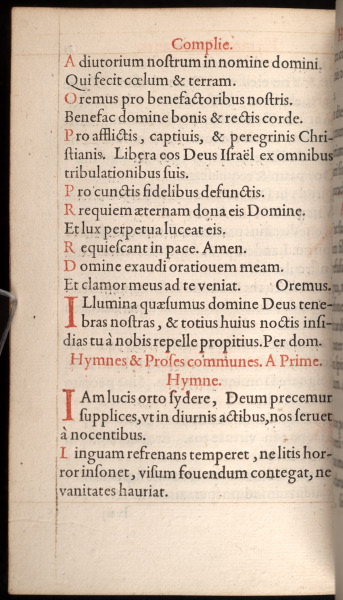 Complie.
A diutorium nostrum in nomine domini.
Qui fecit cœlum & terram.
O remus pro benefactoribus nostris.
Benefac domine bonis & rectis corde.
P ro afflictis, captiuis, & peregrinis Chri-
stianis. Libera eos Deus Israël ex omnibus
tribulationibus suis.
P ro cunctis fidelibus defunctis.
R requiem æternam dona eis Domine.
Et lux perpetua luceat eis.
R equiescant in pace. Amen.
D omine exaudi oratiouem meam.
Et clamor meus ad te veniat. Oremus.
ILlumina quæsumus domine Deus tene-
bras nostras, & totius huius noctis insi-
dias tu à nobis repelle propitius. Per dom.
Hymnes & Proses communes. A Prime.
Hymne.
IAm lucis orto sydere, Deum precemur
supplices, vt in diurnis actibus, nos seruet
à nocentibus.
L inguam refrenans temperet, ne litis hor-
ror insonet, visum fouendum contegat, ne
vanitates hauriat.